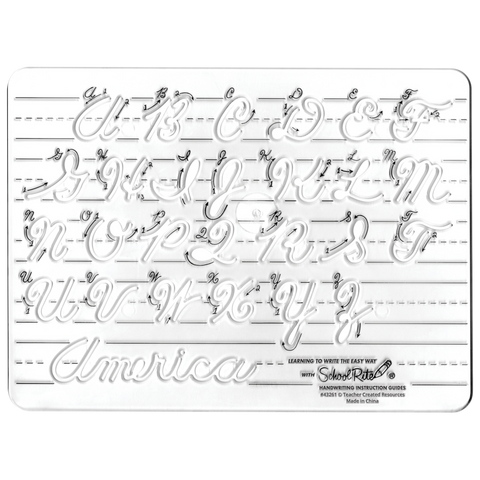 A B C D E F
G H I J K L M
N O P Q R S T
U V W X Y Z
America
LEARNING TO WRITE THE EASY WAY
WITH SchoolRite ®
HANDWRITING INSTRUCTION GUIDES
#43261 © Teacher Created Resources
Made in China